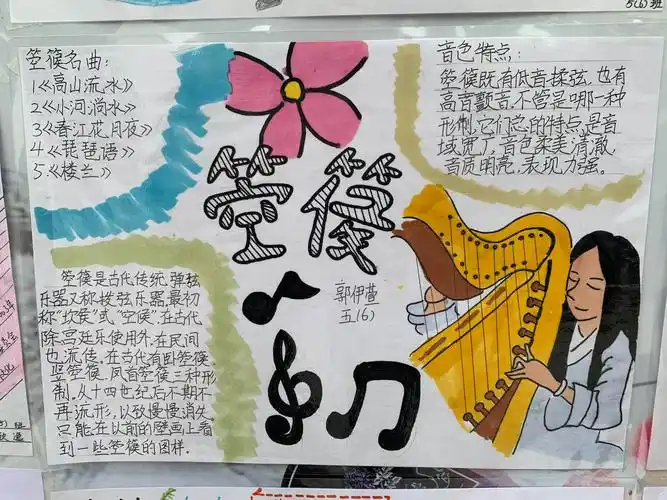 5(6)班
箜篌名曲:
1《高山流水》
2《小河淌水》
3《春江花月夜》
4《琵琶语》
5.《楼兰》
音色特点:
箜篌既有低音揉弦,也有
高音颤音,不管是哪一种
形制,它们总的特点是音
域宽广,音色柔美清澈,
音质明亮,表现力强。
箜篌
郭伊萱
五(6)
箜篌是古代传统弹弦
乐器又称拨弦乐器,最初
称“坎侯”或“空侯”,在古代
除宫廷乐使用外,在民间
也流传,在古代有卧箜篌
竖箜篌,凤首箜篌三种形
制,从十四世纪后不期不
再流形,以致慢慢消失
只能在以前的壁画上看
到一些箜篌的图样.